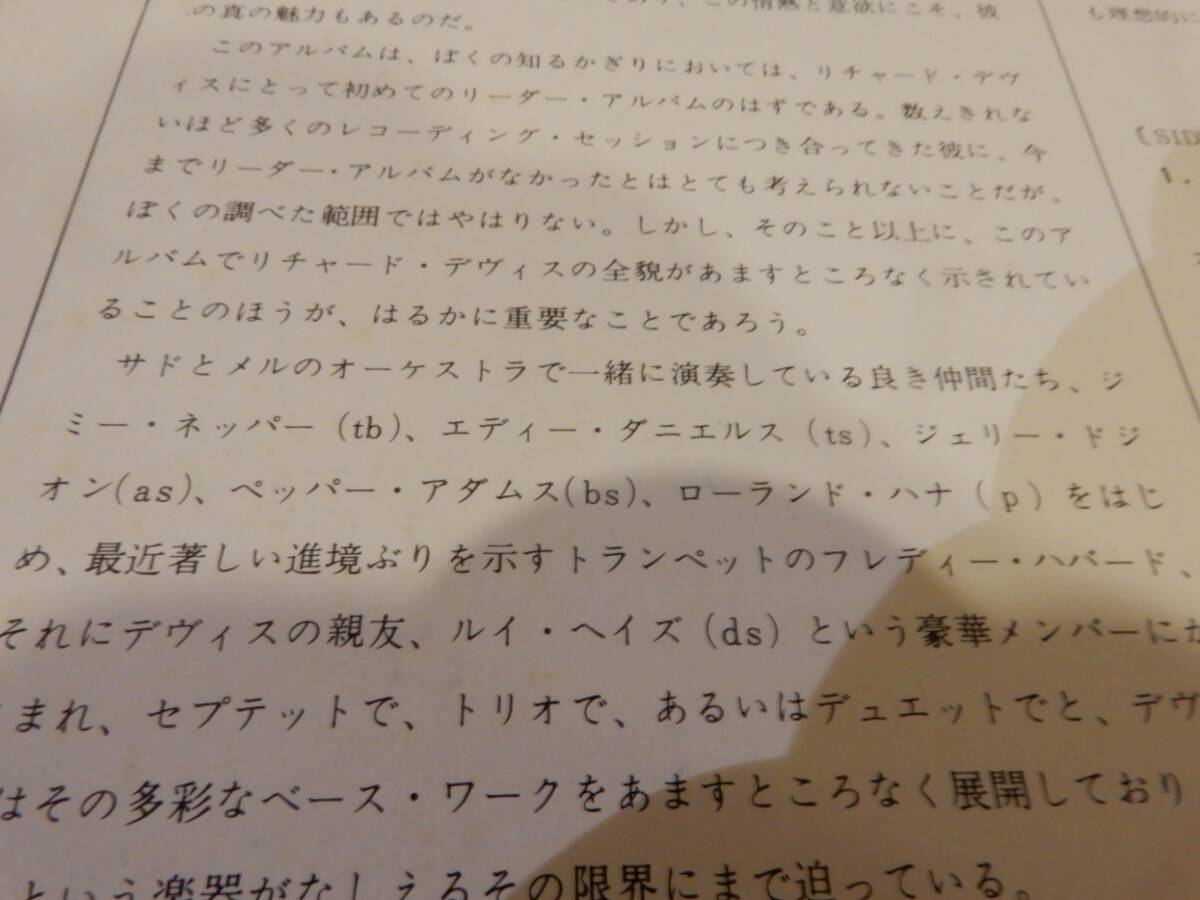 この情熱と意欲にこそ、彼
の真の魅力もあるのだ。
このアルバムは、ぼくの知るかぎりにおいては、リチャード・デヴ
ィスにとって初めてのリーダー・アルバムのはずである。数えきれな
いほど多くのレコーディング・セッションにつき合ってきた彼に、今
までリーダー・アルバムがなかったとはとても考えられないことだが、
ぼくの調べた範囲ではやはりない。しかし、そのこと以上に、このア
ルバムでリチャード・デヴィスの全貌があますところなく示されてい
ることのほうが、はるかに重要なことであろう。
サドとメルのオーケストラで一緒に演奏している良き仲間たち、ジ
ミー・ネッパー(tb)、エディー・ダニエルス(ts)、ジェリー・ドジ
オン(as)、ペッパー・アダムス(bs)、ローランド・ハナ(p)をはじ
め、最近著しい進境ぶりを示すトランペットのフレディー・ハバード、
それにデヴィスの親友、ルイ・ヘイズ(ds)という豪華メンバーにか
こまれ、セプテットで、トリオで、あるいはデュエットでと、デヴ
はその多彩なベース・ワークをあますところなく展開しており
という楽器がなしえるその限界にまで迫っている。
も理想的に
〔SID
1.